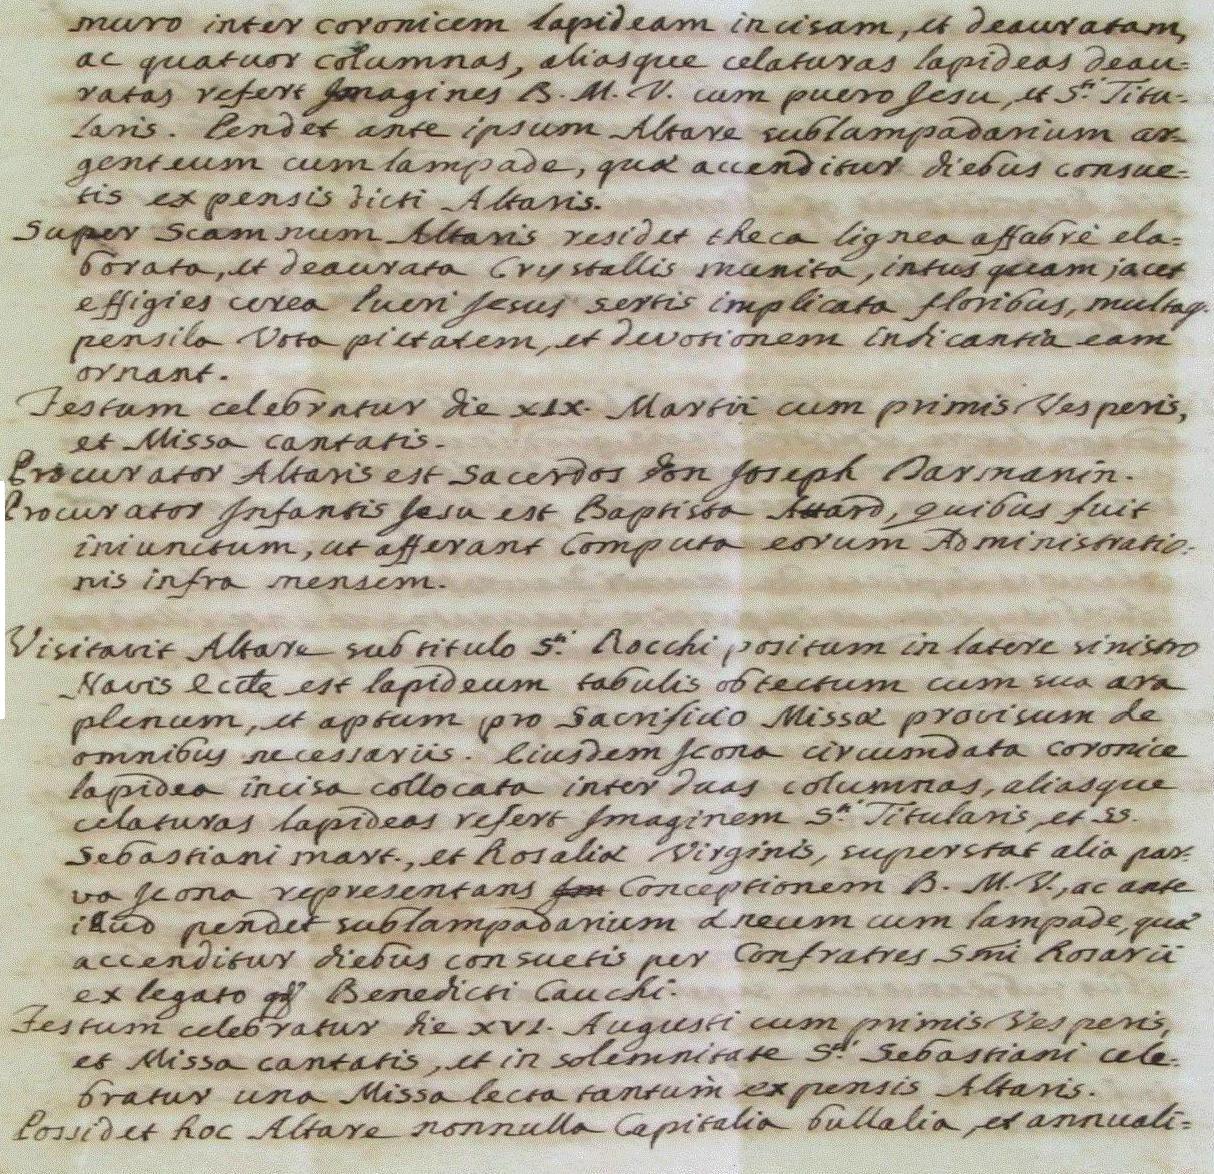 muro inter coronicem lapideam incisam, et deauratam,
ac quatuor columnas, aliasque celaturas lapideas deau=
ratas refert Imagines B. M. V. cum puero Jesu, et S.ti Titu=
laris. Pendet ante ipsum Altare sublampadarium ar=
genteum cum lampade, quæ accenditur diebus consue=
tis expensis dicti Altaris.
Super Scamnum Altaris residet theca lignea affabré ela=
borata, et deaurata Crystallis munita, intus quam jacet
effigies cerea Pueri Jesus sertis implicata floribus, multaq.
pensila Vota pietatem, et devotionem indicantia eam
ornant.
Festum celebratur die XIX. Martii cum primis Vesperis,
et Missa cantatis.
Procurator Altaris est Sacerdos Don Joseph Darmanin.
Procurator Infantis Jesu est Baptista Attard, quibus fuit
iniunctum, ut afferant Computa eorum Administratio=
nis infra mensem.
Visitavit Altare sub titulo S.ti Rocchi positum in latere sinistro
Navis Eccle est lapideum tabulis obtectum cum sua ara
plenum, et aptum pro Sacrificio Missæ provisum de
omnibus necessariis. Eiusdem Icona circumdata coronice
lapidea incisa collocata inter duas columnas, aliasque
celaturas lapideas refert Imaginem S.ti Titularis, et SS.
Sebastiani mart., et Rosaliæ Virginis, superstat alia par=
va Icona representans Im Conceptionem B. M. V., ac ante
illud pendet sublampadarium æneum cum lampade, quæ
accenditur diebus consuetis per Confratres Smi Rosarii
ex legato qd Benedicti Cauchi.
Festum celebratur die XVI. Augusti cum primis Vesperis,
et Missa cantatis, et in solemnitate S.ti Sebastiani cele=
bratur una Missa lecta tantum expensis Altaris.
Possidet hoc Altare nonnulla Capitalia bullalia, et annuali=